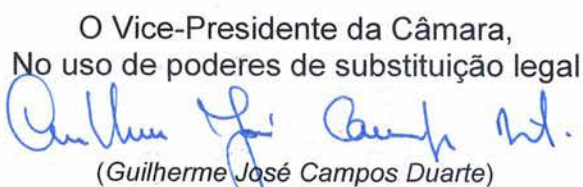 O Vice-Presidente da Câmara,
No uso de poderes de substituição legal
Guilherme José Campos
(Guilherme José Campos Duarte)